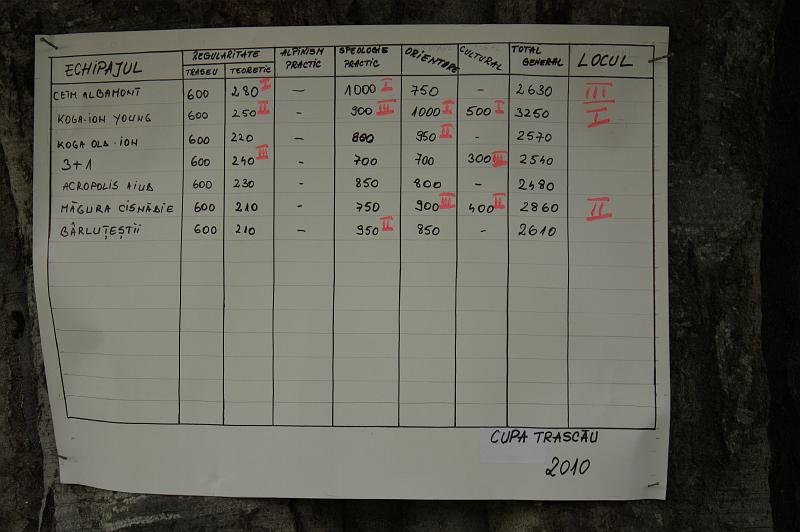 ECHIPAJUL REGULARITATE ALPINISM PRACTIC SPEOLOGIE PRACTIC ORIENTARE CULTURAL TOTAL GENERAL LOCUL
TRASEU TEORETIC
CETM ALBAMONT 600 280 I — 1000 I 750 - 2630 III
KOGA-ION YOUNG 600 250 II - 900 III 1000 I 500 I 3250 I
KOGA OLD-ION 600 220 - 800 950 II - 2570
3+1 600 240 III - 700 700 300 III 2540
ACROPOLIS AIUD 600 230 - 850 800 - 2480
MĂGURA CISNĂDIE 600 210 - 750 900 III 400 II 2860 II
BÂRLUȚEȘTII 600 210 - 950 II 850 - 2610
CUPA TRASCĂU
2010